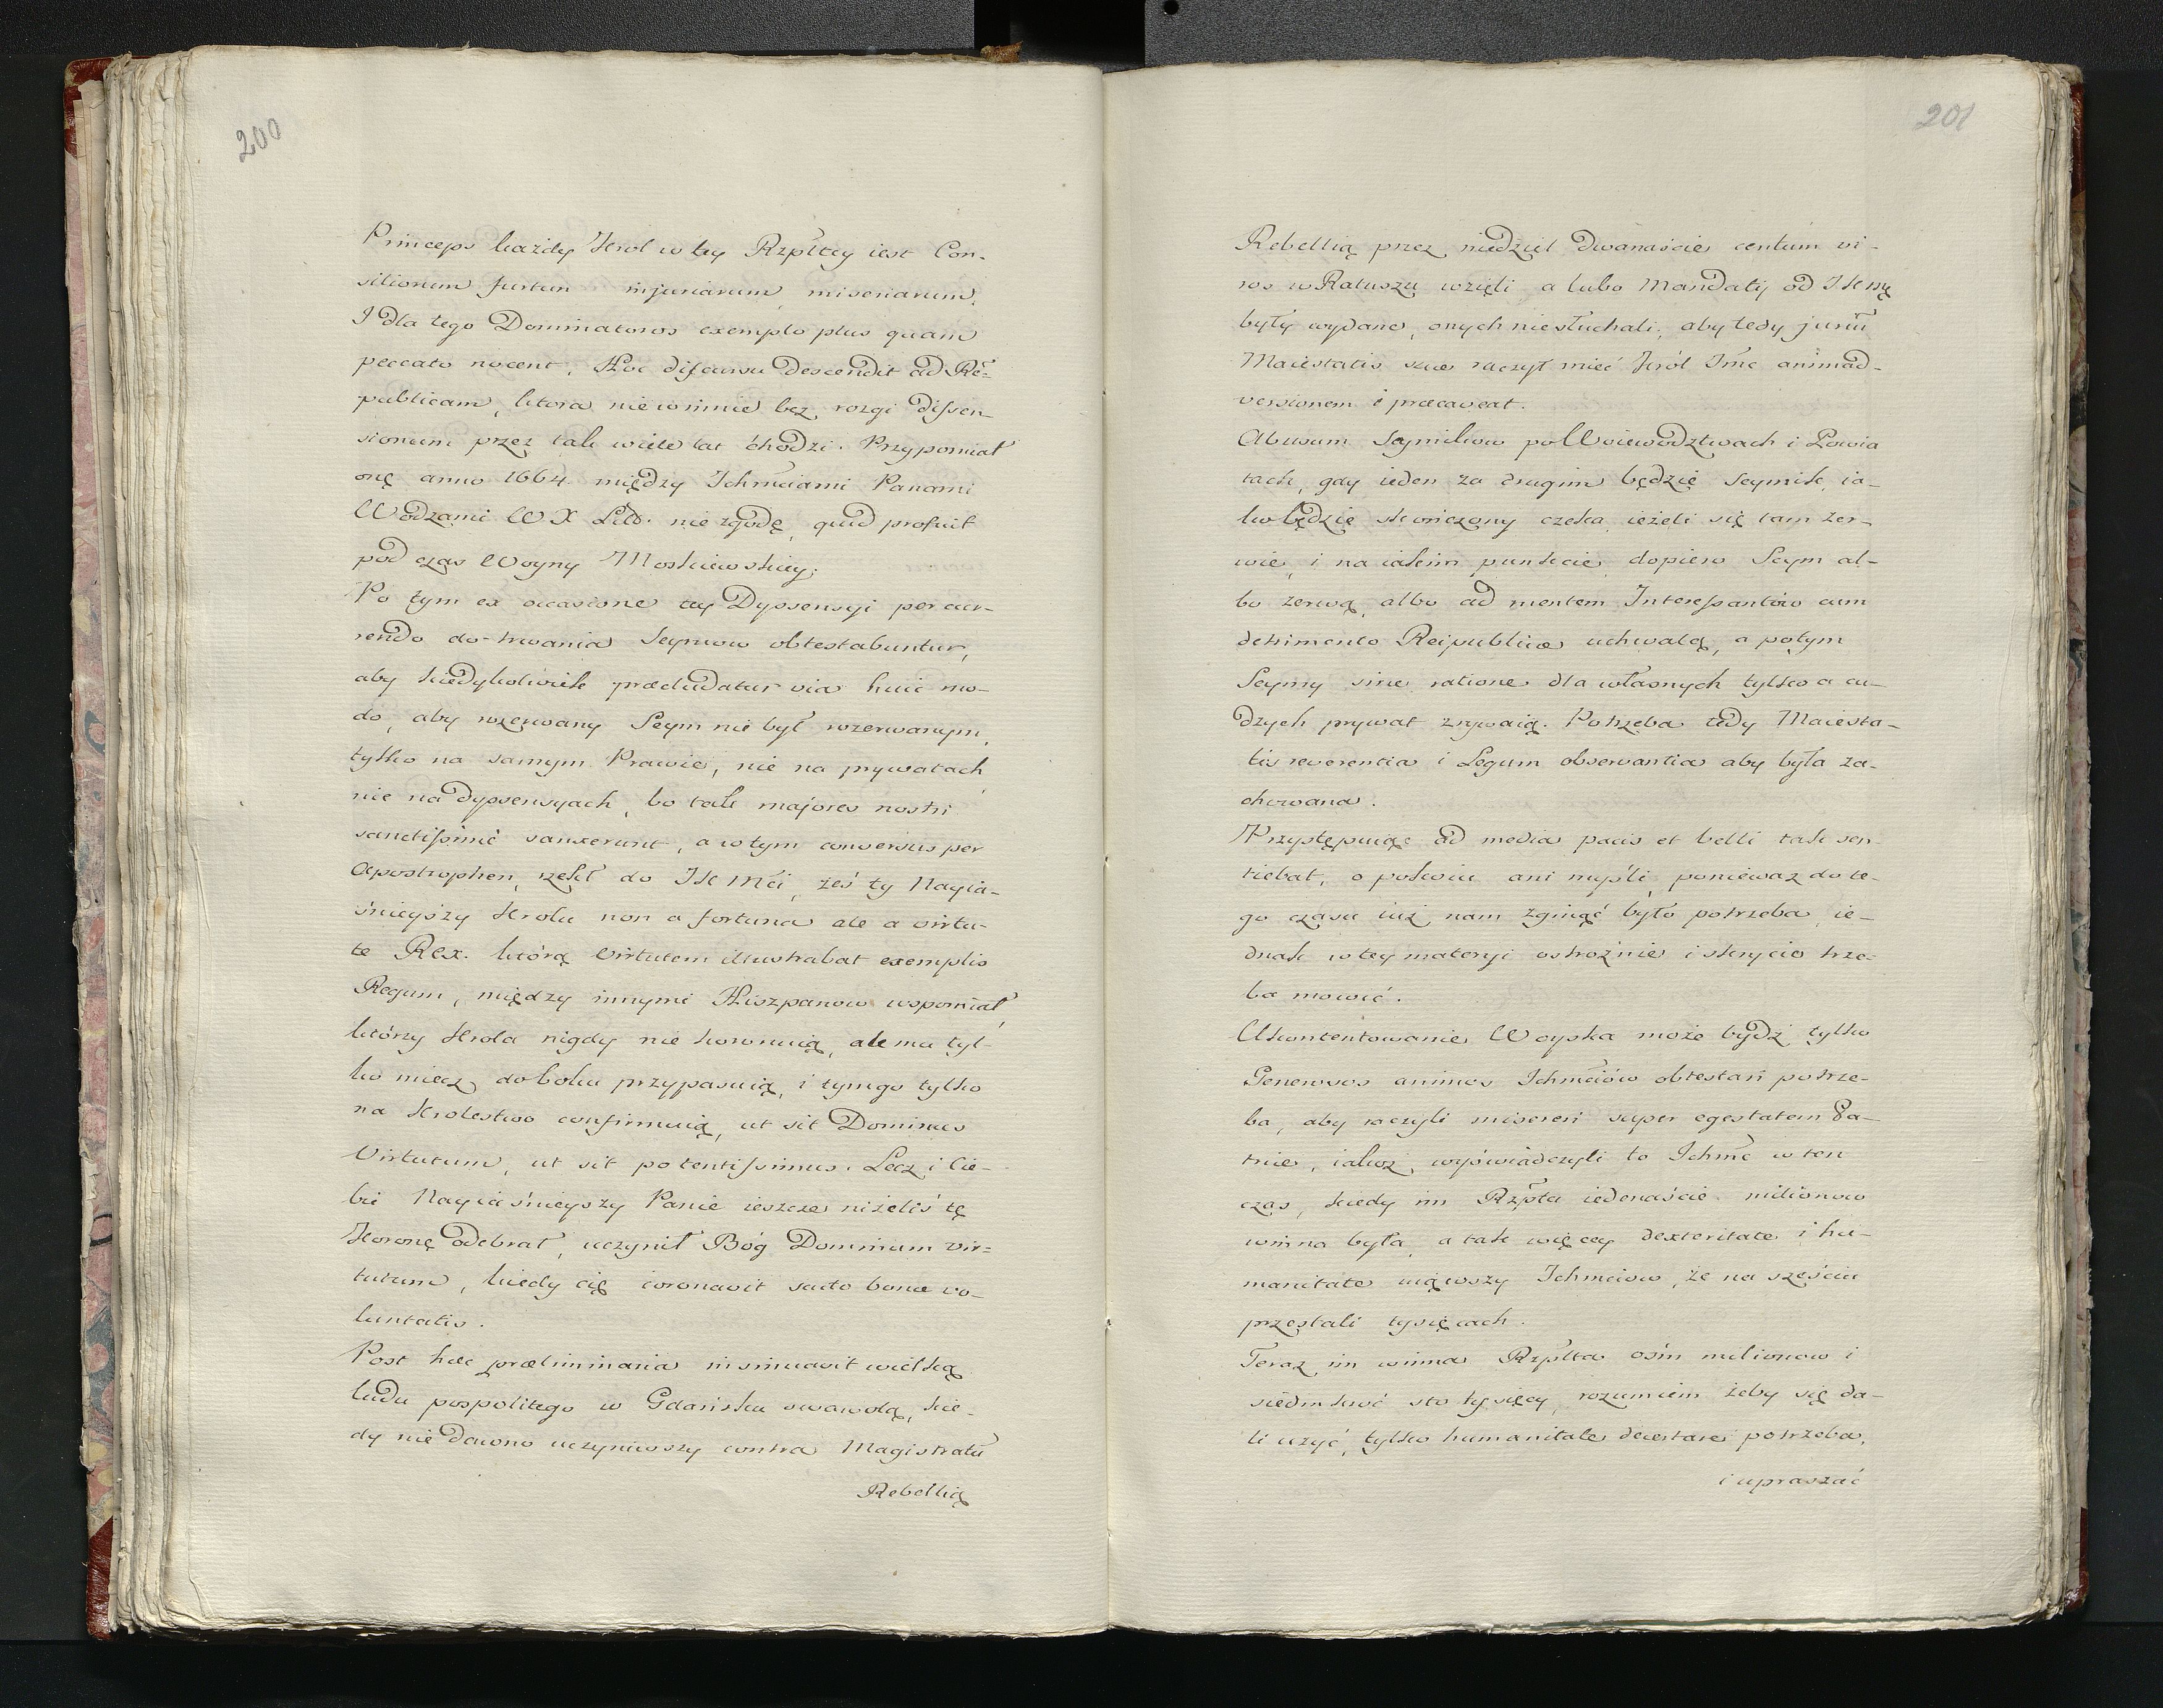 200
Princeps każdy Krol w tey Rzpltey iest Con-
siliorum furtum injuriarum, miseriarum.
I dla tego Dominatores exemplo plus quam
peccato nocent. Hoc discursu descendit ad Re-
publicam, ktora niewinnie bez rozgi dissen-
sionum przez tak wiele lat chodzi. Przypomiał
onę anno 1664 między Ichmciami Panami
Wodzami W X Litt. nie zgodę, quid profuit
pod czas Woyny Moskiewskiey.
Po tym ex occasione tey Dyssensyi percur-
rendo do trwania Seymow obtestabuntur,
aby kiedykolwiek praecludatur via huic mo-
do, aby rozerwany Seym nie był rozerwanym,
tylko na samym Prawie, nie na prywatach
nie na dyssensyach, bo tak majores nostri
sanctissimé sanxerunt, a w tym conversus per
Apostrophen, rzekł do JK Mći, żeś ty Nayia-
śnieyszy Krolu non a fortuna ale a virtu-
te Rex. którą Virtutem illustrabat exemplis
Regum, między innymi Hiszpanow wspomiał,
którzy Krola nigdy nie koronuią, ale mu tyl-
ko miecz do boku przypasuią, i tymgo tylko
na Krolestwo confirmuią, ut sit Dominus
Virtutum, ut sit potentissimus. Lecz i Cie-
bie Nayiaśnieyszy Panie ieszcze niżeliś tę
Koronę odebrał, uczynił Bóg Dominum vir-
tutum, kiedy cię coronavit scuto bonae vo-
luntatis.
Post haec praeliminaria insinuavit wielką
ludu pospolitego w Gdańsku swawolą, kie-
dy nie dawno uczyniwszy contra Magistratũ
Rebellią
201
Rebellią przez niedziel dwanaście centum vi-
ros w Ratuszu wzięli, a lubo Mandaty od JKMę
były wydane, onych niesłuchali, aby tedy juriũ
Maiestatis suae raczył mieć Król Jmc animad-
versionem i praecaveat.
Abusum Seymikow po Woiewodztwach i Powia
tach, gdy ieden za drugim będzie Seymik, ia-
ko będzie skończony czeka, ieżeli się tam zer-
wie, i na iakim punkcie, dopiero Seym al-
bo zerwą, albo ad mentem Interessantów cum
detrimento Reipublicae uchwalą, a potym
Seymy sine ratione dla własnych tylko a cu-
dzych prywat zrywaią. Potrzeba tedy Maiesta-
tis reverentia i Legum observantia aby była za-
chowana.
Przystępuiąc ad media pacis et belli tak sen-
tiebat, o pokoiu ani myśli, ponieważ do te-
go czasu iuż nam zginąć było potrzeba, ie-
dnak w tey materyi ostrożnie i skrycie trze-
ba mowić.
Ukontentowanie Woyska może bydź tylko
Generosos animos Ichmciów obtestari potrze-
ba, aby raczyli misereri super egestatem Pa-
triae, iakoż wyświadczyli to Ichmc w ten
czas, kiedy im Rzpta iedenaście milionow
winna była, a tak więcey dexteritate i hu-
manitate uiąwszy Ichmciow, że na sześciu
przestali tysięcach.
Teraz im winna Rzplta ośm milionow i
siedmkroć sto tysięcy, rozumiem żeby się da-
li użyć, tylko humanitate decertare potrzeba,
i upraszać